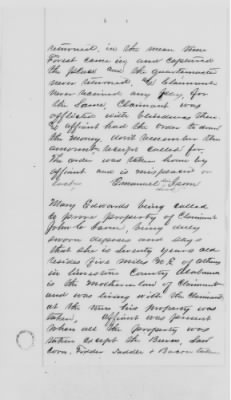 returned, in the mean time
Forest came in and captured
the place and the quartermaster
never returned, Claimant
never received any pay, for
the same, Claimant was
afflicted with blindness then
affiant had the order to draw
the money don't remember the
amount receipt called for.
The order was taken home by
affiant and is misplaced or
lost. Emanuel Isom
Mary Edwards being called
to prove property of Claimant
John C. Isom, being duly
sworn deposes and says
that she is seventy years old
resides five miles N.E. of Athens
in Limestone County Alabama
is the mother in law of Claimant
and was living with the Claimant
at the time his property was
taken, affiant was present
when all the property was
taken except the Bacon, saw
Corn, Fodder Saddle & Bacon taken